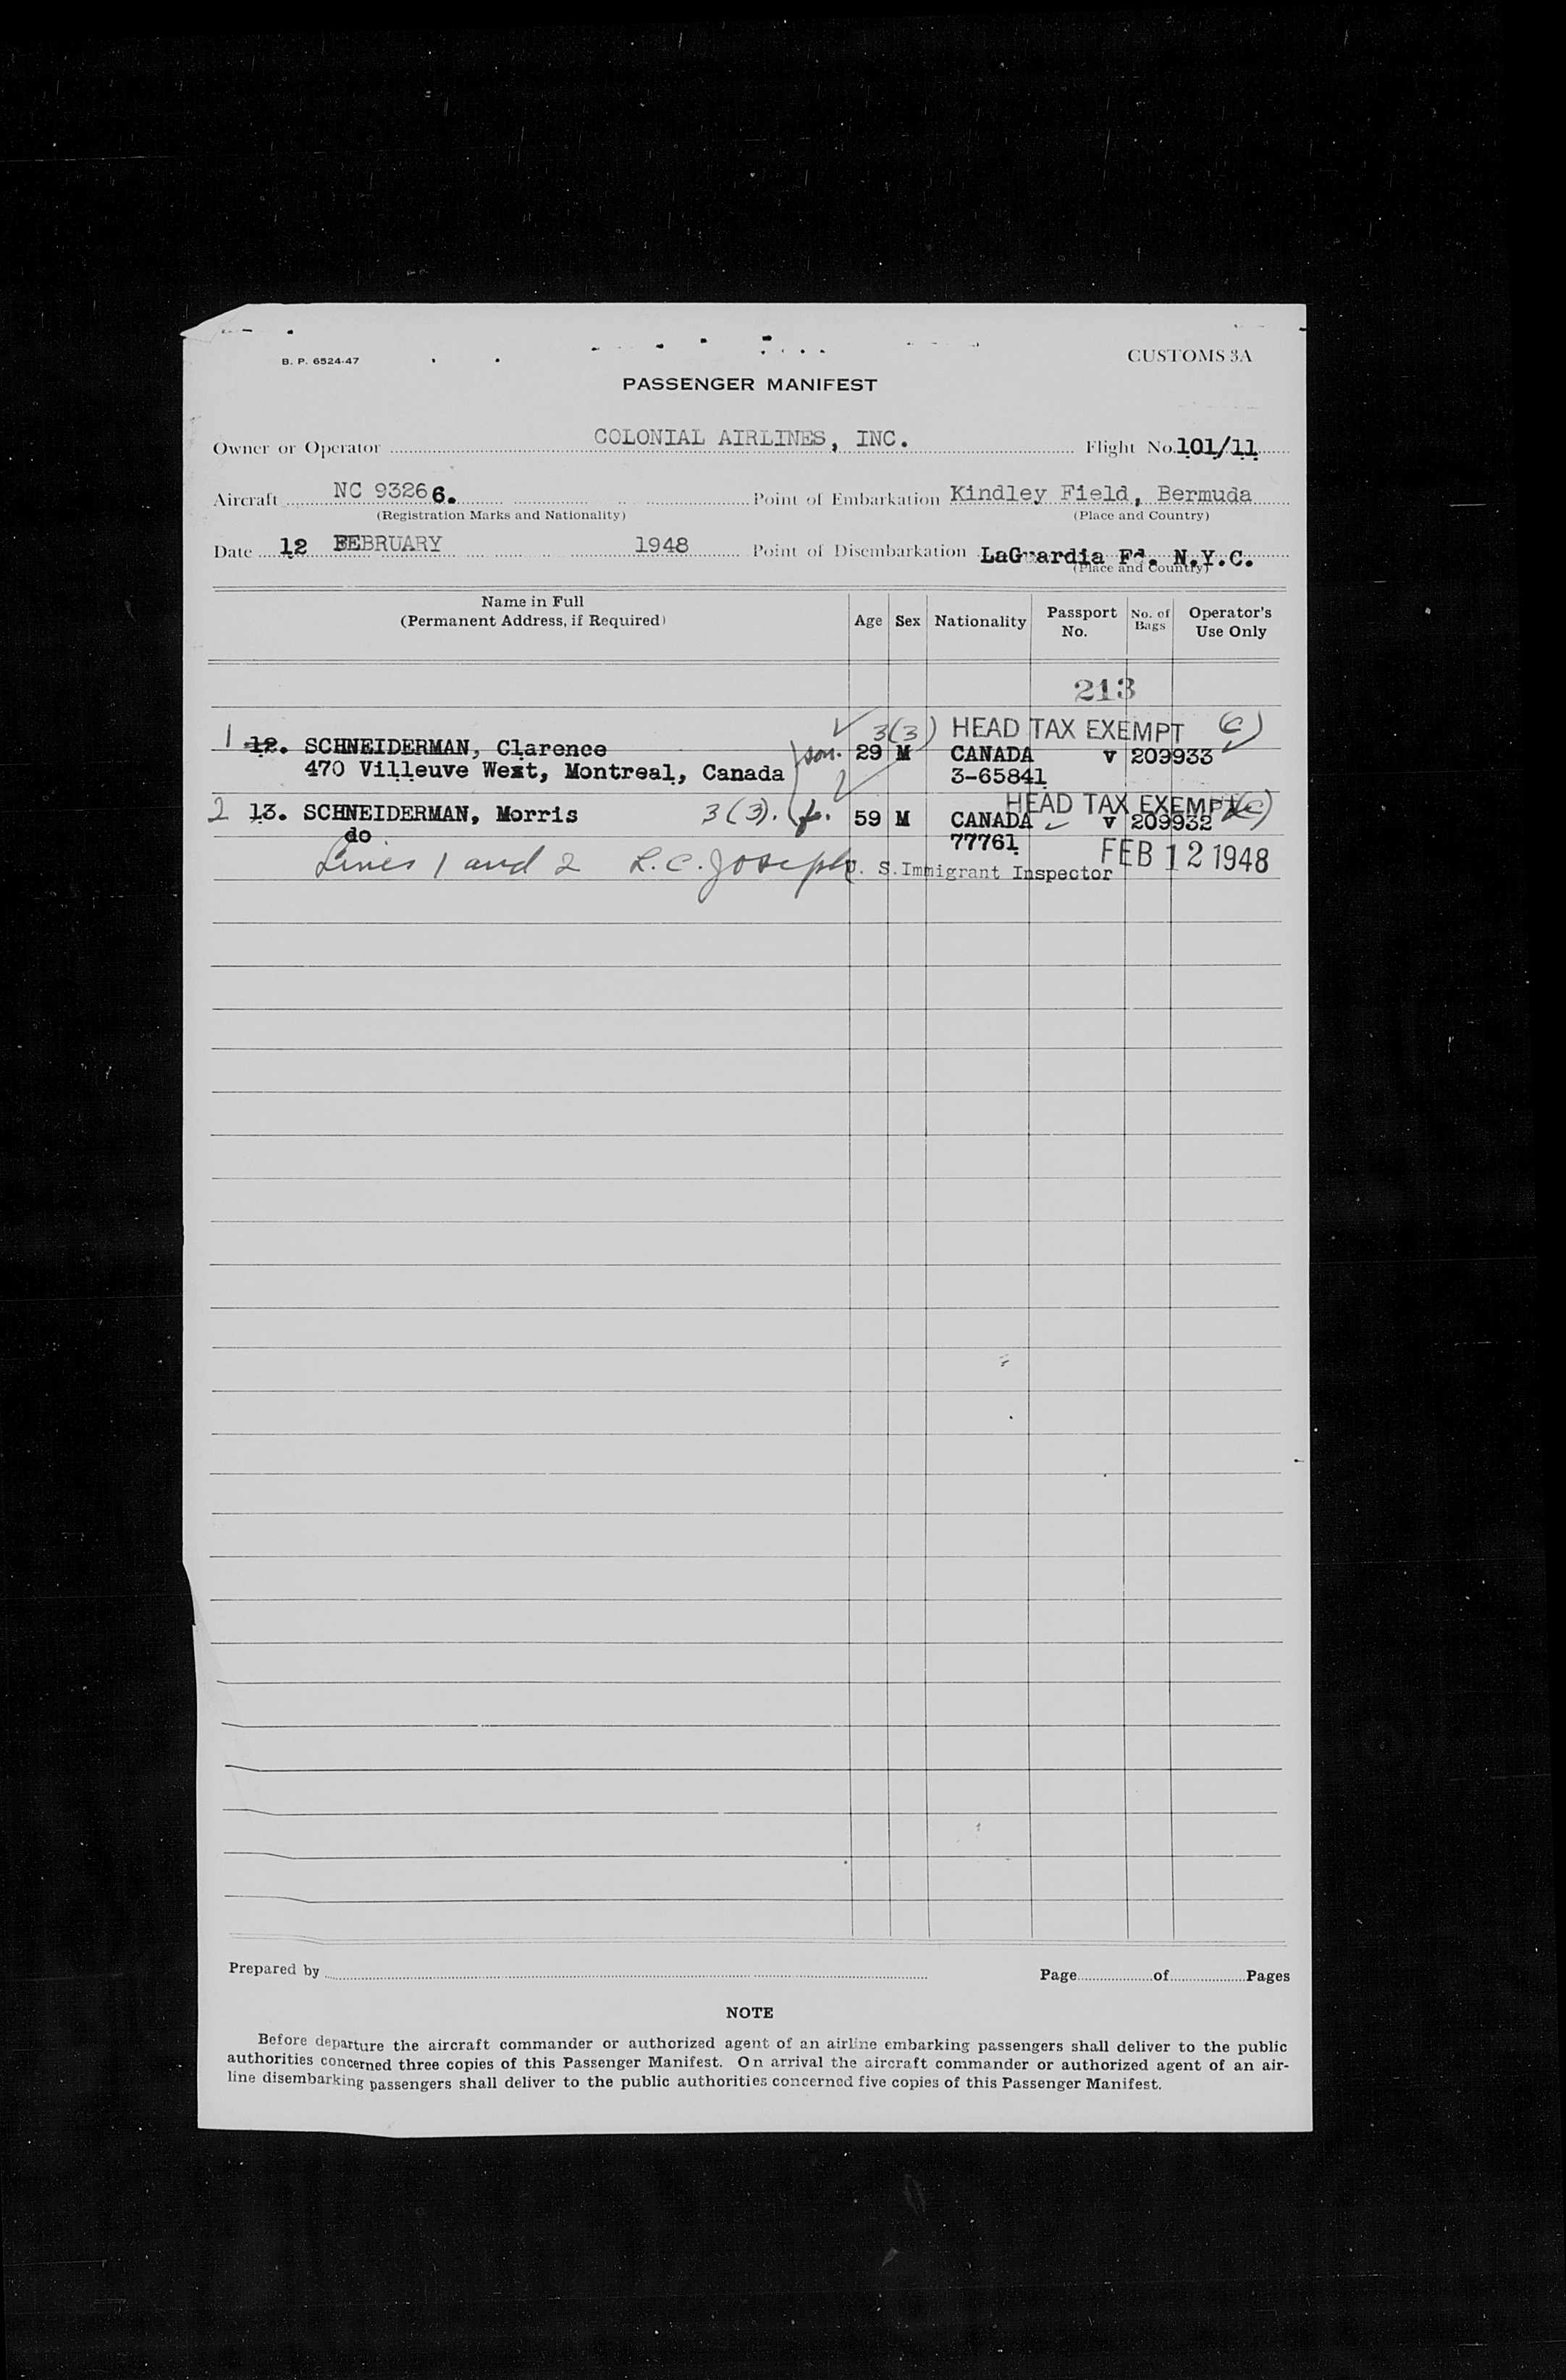 B. P. 6524-47
CUSTOMS 3A
PASSENGER MANIFEST
Owner or Operator COLONIAL AIRLINES, INC. Flight No. 101/11
Aircraft NC 93266. Point of Embarkation Kindley Field, Bermuda
(Registration Marks and Nationality) (Place and Country)
Date 12 FEBRUARY 1948 Point of Disembarkation LaGuardia Fd. N.Y.C.
(Place and Country)
Name in Full
(Permanent Address, if Required) Age Sex Nationality Passport No. No. of Bags Operator's Use Only
213
3(3) HEAD TAX EXEMPT (C)
1 12. SCHNEIDERMAN, Clarence son. 29 M CANADA v 209933
470 Villeuve West, Montreal, Canada 3-65841
HEAD TAX EXEMPT (C)
2 13. SCHNEIDERMAN, Morris 3(3). f. 59 M CANADA v 209932
do 77761
Lines 1 and 2 L.C. Joseph U. S. Immigrant Inspector FEB 12 1948
Prepared by Page of Pages
NOTE
Before departure the aircraft commander or authorized agent of an airline embarking passengers shall deliver to the public
authorities concerned three copies of this Passenger Manifest. On arrival the aircraft commander or authorized agent of an air-
line disembarking passengers shall deliver to the public authorities concerned five copies of this Passenger Manifest.